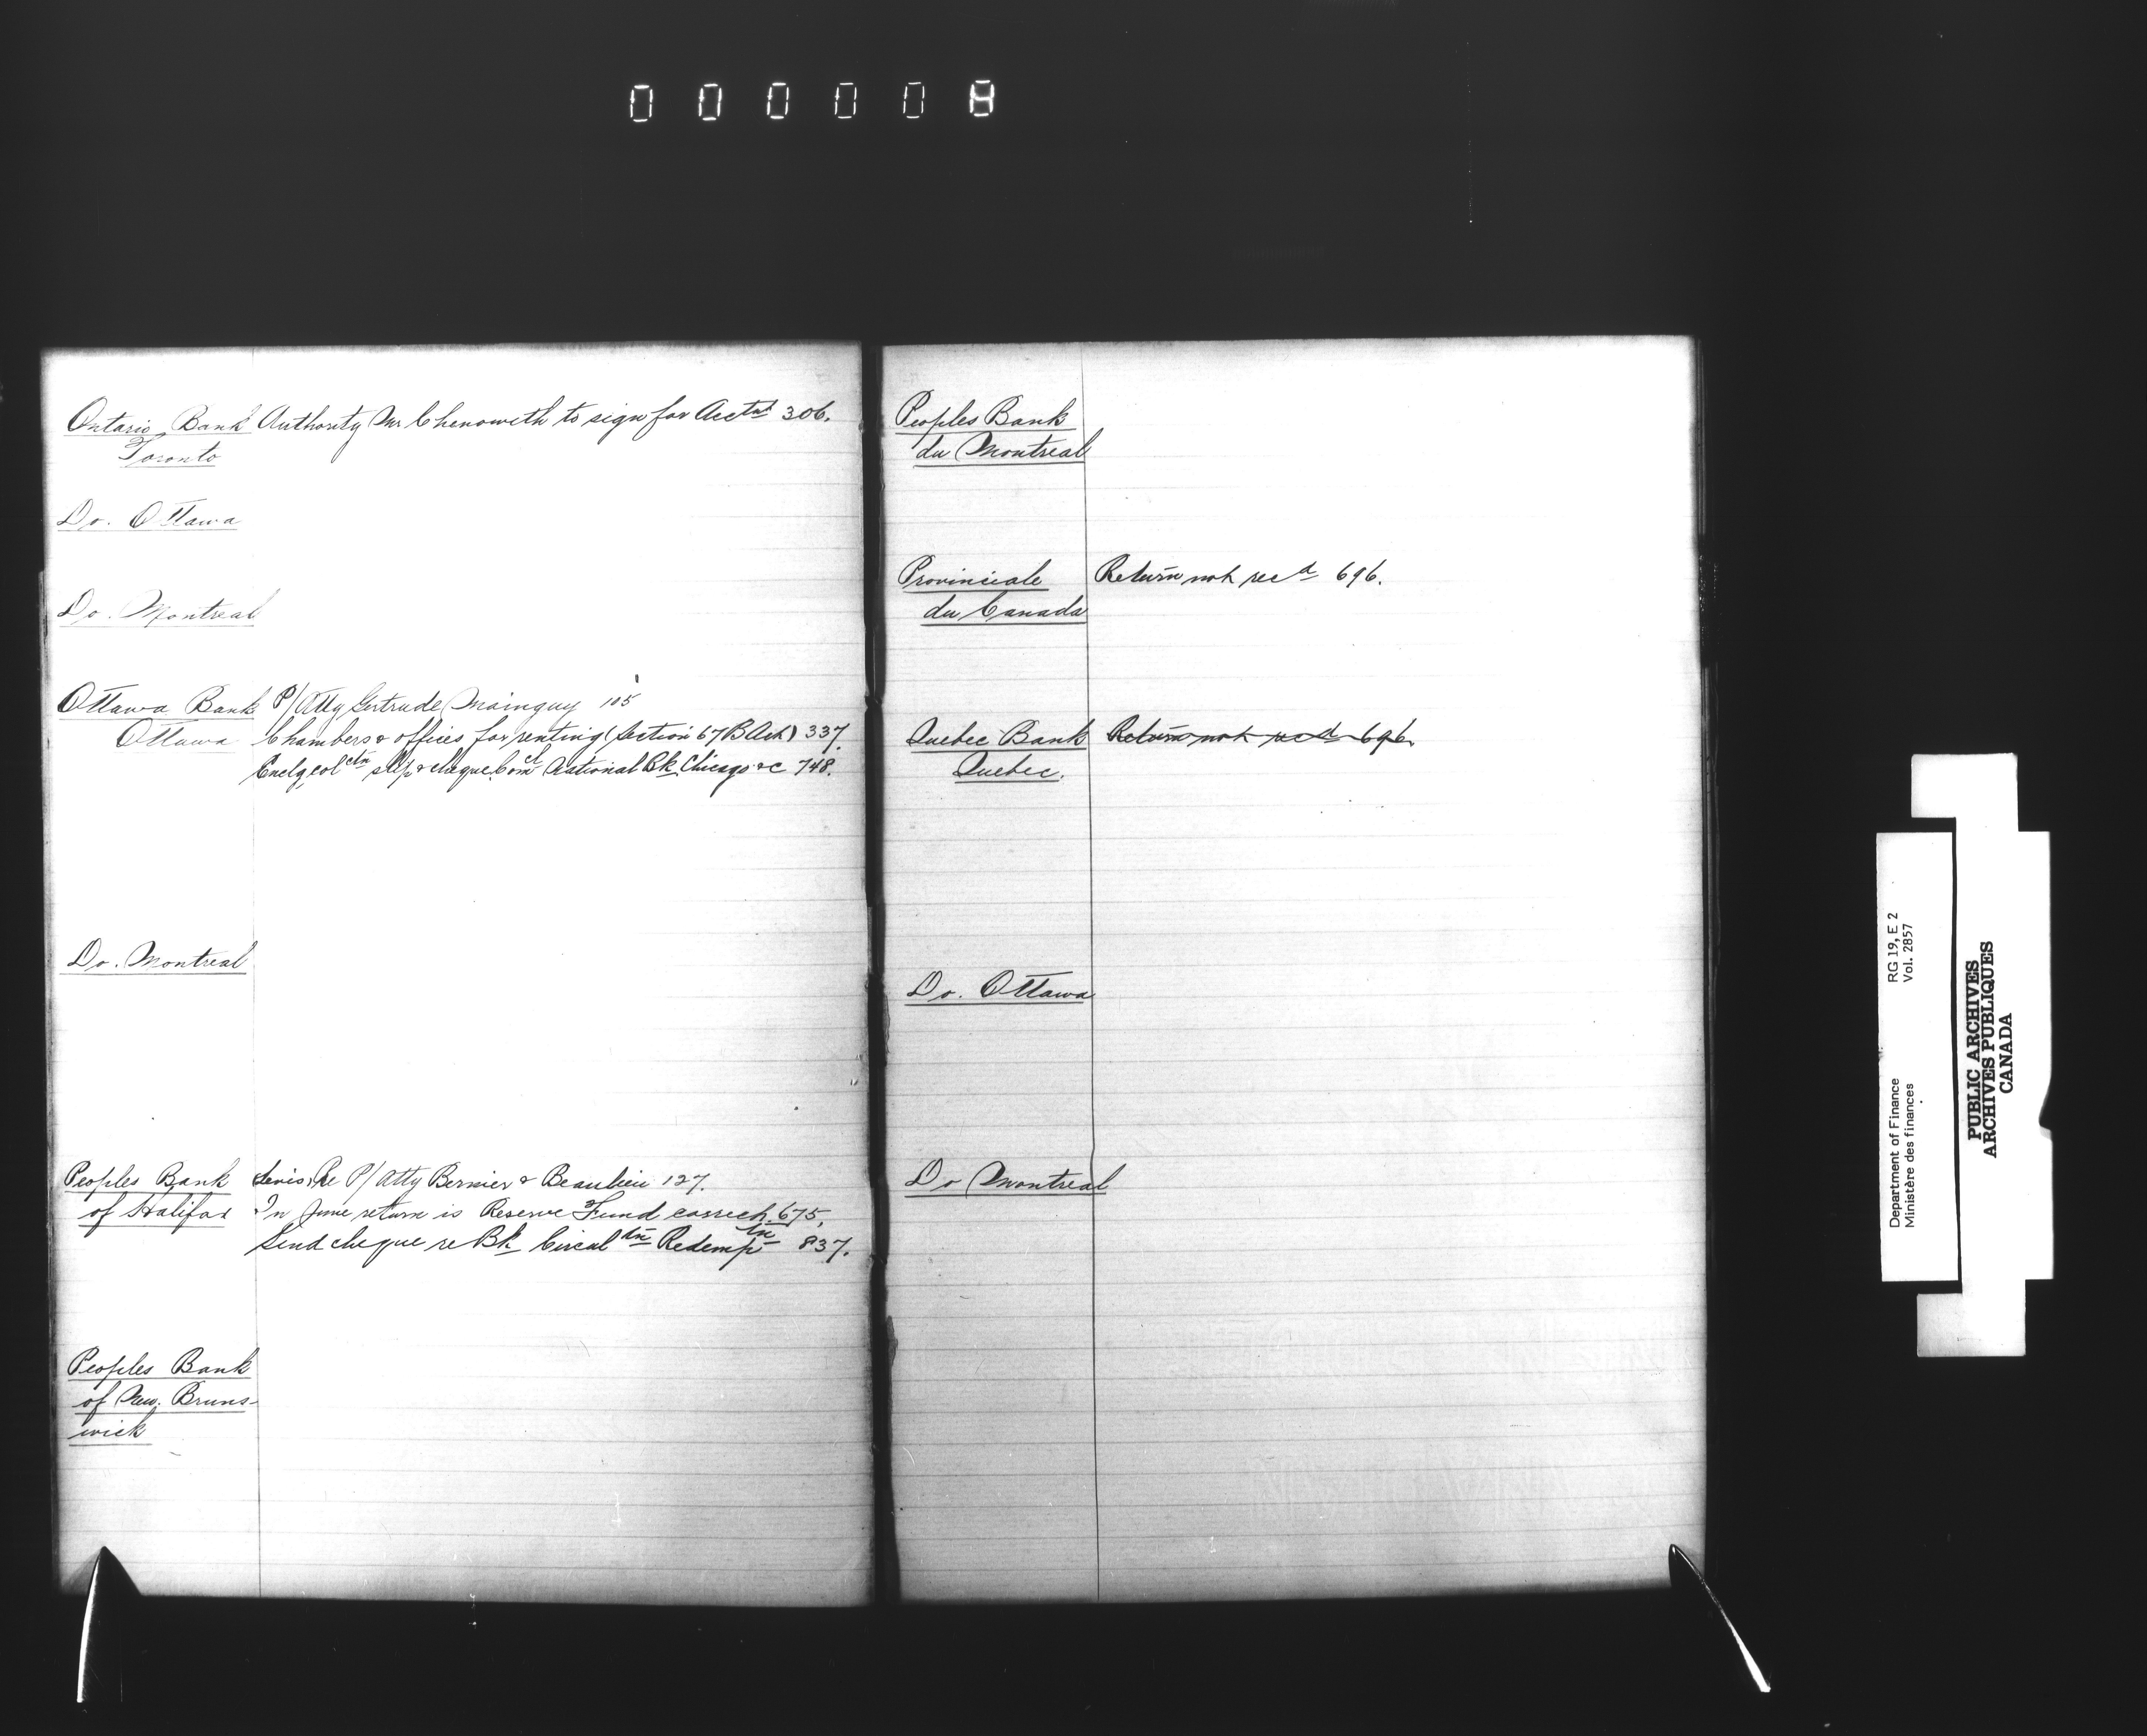 0 0 0 0 0 8
Ontario Bank Authority Mr Chenoweth to sign for Acctnt 306.
Toronto
Do. Ottawa
Do. Montreal
Ottawa Bank P/Atty Gertrude Mainguy 105
Ottawa Chambers & offices for renting (Section 67 B Act) 337.
Enclg colctn slip & cheque Comcl National Bk Chicago &c 748.
Do. Montreal
Peoples Bank Levis, Re P/Atty Bernier & Beaulieu 127.
of Halifax In June return is Reserve Fund correct 675.
Send cheque re Bk Circultn Redemptn 837.
Peoples Bank
of New. Bruns-
wick
Peoples Bank
du Montreal
Provinciale Return not recd 696.
du Canada
Quebec Bank Return not recd 696.
Quebec.
Do. Ottawa
Do Montreal
Department of Finance RG 19, E 2
Ministère des finances Vol. 2857
PUBLIC ARCHIVES
ARCHIVES PUBLIQUES
CANADA